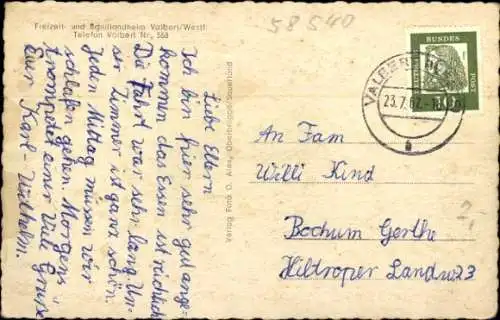 Freizeit- und Schullandheim Valbert/Westf.
Telefon Valbert Nr. 368
58540
Liebe Eltern
Ich bin hier sehr gut ange-
kommen das Essen ist reichlich
Die Fahrt war sehr lang Un-
ser Zimmer ist ganz schön
Jeden Mittag müssen wir
schlafen gehen. Morgens
trompetet einer Viele Grüsse
Euer Karl-Wilhelm.
Verlag Foto O. Alex, Oberbrügge/Sauerland
DEUTSCHE
BUNDES
POST
VALBERT
23.7.62.-18
a
An Fam
Willi Kind
Bochum Gerthe
Hiltroper Landw 23